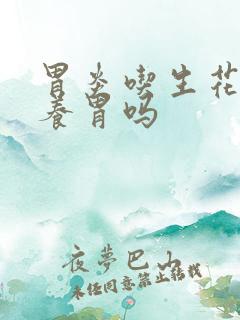 胃炎喫生花
養胃吗
夜夢巴山
未经同意禁止转载